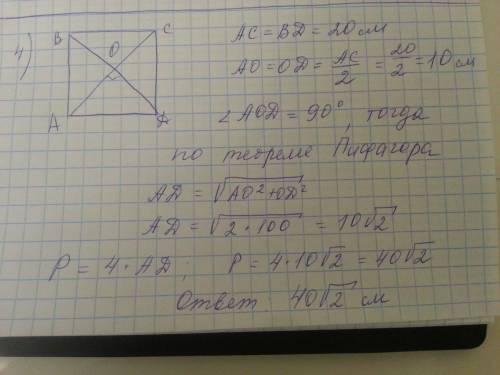 4)
B C
O
A D
AC = BD = 20 см
AO = OD = AC/2 = 20/2 = 10 см
∠AOD = 90°, тогда
по теореме Пифагора
AD = √(AO² + OD²)
AD = √(2 · 100) = 10√2
P = 4 · AD; P = 4 · 10√2 = 40√2
Ответ: 40√2 см